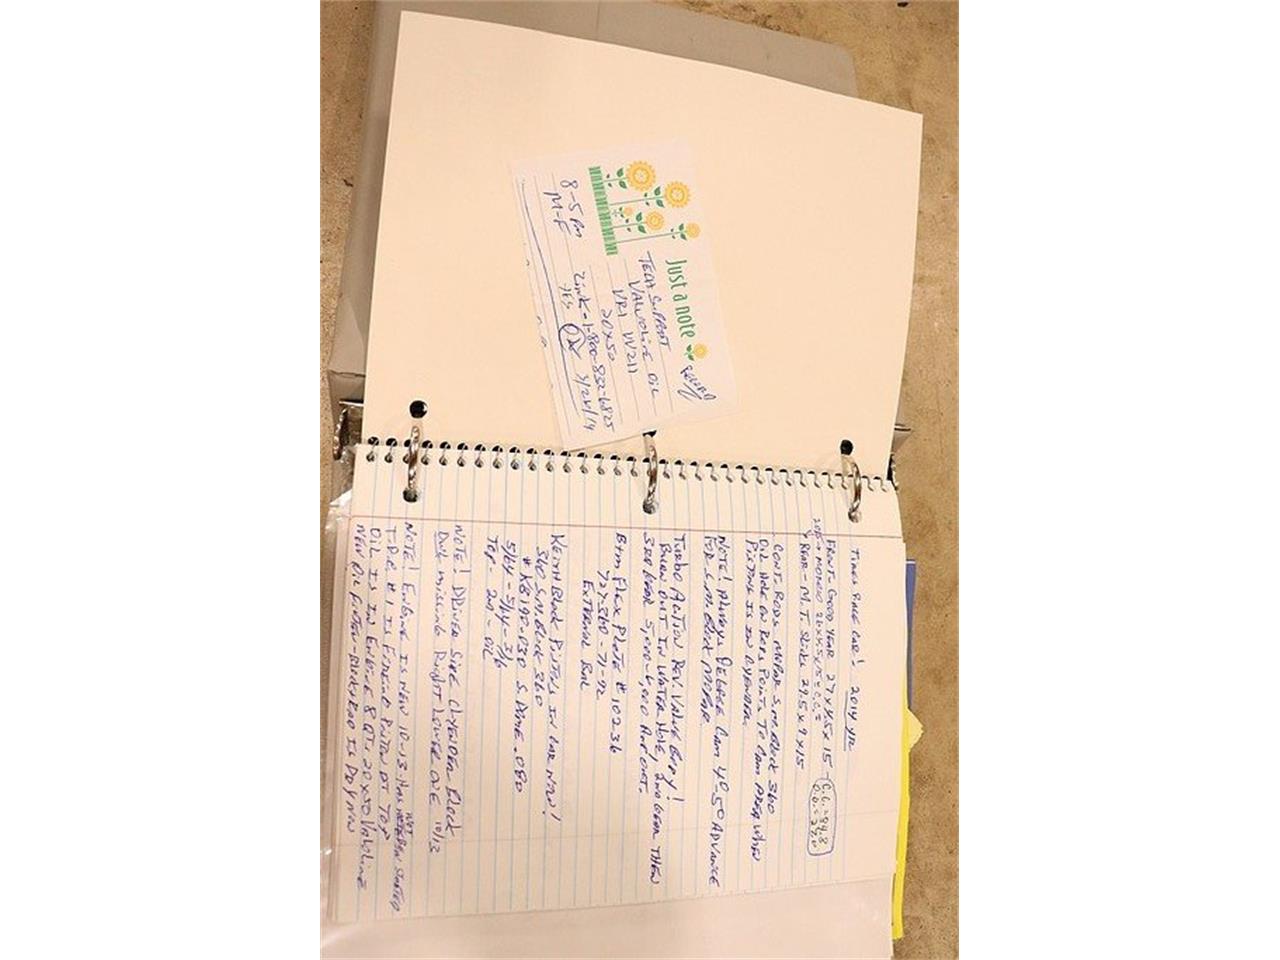 Just a note
RECORD
TECH SUPPORT
VALVOLINE OIL
VR1 VV211
20x50
Zink - 1-800-832-6825
8-5 PM
M-F
YES
TIRES RACE CAR! 2014 YR
FRONT - GOOD YEAR 27 x 4.5 x 15 -
C.C. = 84.8
O.D. = 27.0
REAR - M.T. Slicks 29.5 x 9 x 15
CONT. RODS MOPAR S.M. Block 360
OIL HOLE ON RODS POINTS TO CAM AREA WHEN
PISTON IS IN CYLENDER.
NOTE! Always DEGREE CAM 4°-5° ADVANCE
FOR S.M. Block MOPAR
TURBO ACTION REV. VALVE BODY!
BURN OUT IN WATER HOLE, 2ND GEAR THEN
3RD GEAR 5,000-6,000 AND OUT.
BTM. FLEX PLATE # 10236
727-360-71-92
EXTERNAL BAL
KEITH Black PISTONS IN CAR NOW!
360 S.M. Block 360
# KB190-030 S. DOME .080
5/64 - 5/64 - 3/16
TOP - 20 - OIL
NOTE! DRIVER SIDE CYLENDER Block
Dowl missing Right LOWER ONE 10/13
NOTE! ENGINE IS NEW 10-13-Has NOT BEEN STARTED
T.D.C. # 1 IS FIRING PISTON AT TOP
OIL IS IN ENGINE 8 QT. 20x50 Valvoline
NEW OIL FILTER - Block ROD IS DRY NOW